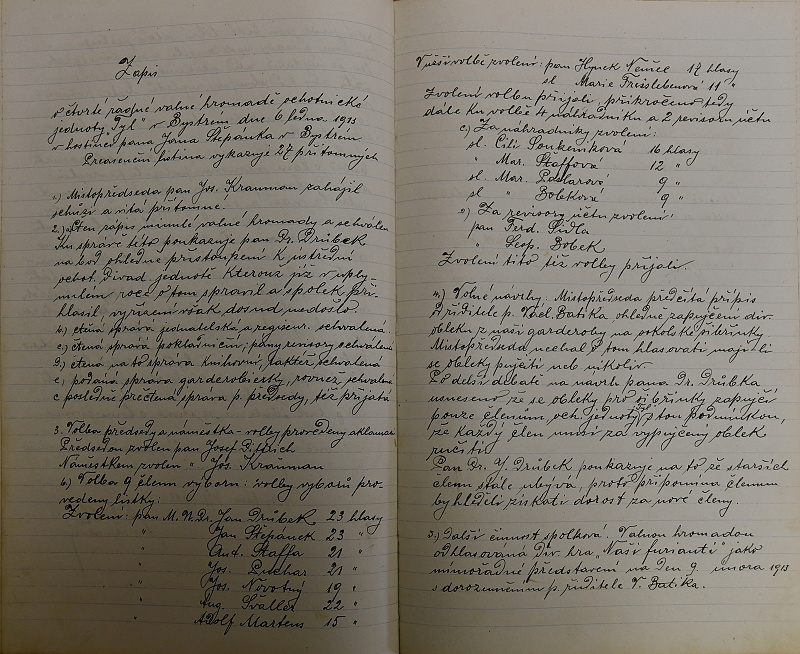 Zápis
o čtvrté řádné valné hromadě ochotnické
jednoty "Tyl" v Bystrém dne 6 ledna 1913
v hostinci pana Jana Štěpánka v Bystrém.
Presenční listina vykazuje 27 přítomných
1.) Místopředseda pan Jos. Krauman zahájil
schůzi a vítá přítomné.
2.) Čten zápis minulé valné hromady a schválen
Ku správě této poukazuje pan Dr. Drůbek
na bod ohledně přistoupení k ústřední
ochot. Divad. jednotě kterouž již v uply-
nulém roce o tom spravil a spolek při-
hlásil, vyřízení však dosud nedošlo.
b.) čtena správa jednatelská a registr. schválena
c.) čtena správa pokladniční; pány revisory schválena
d.) čtena na to správa knihovní, taktéž schválena
e.) podána správa garderobiérky, rovněž schválena
a posledně přečtena správa p. předsedy, též přijata
3. Volba předsedy a náměstka - volby provedeny aklamací
Předsedou zvolen pan Josef Dittrich
Náměstkem zvolen " Jos. Krauman
b.) Volba 9 členů výboru: volby výborů pro-
vedeny lístky:
Zvoleni: pan M.U.Dr. Jan Drůbek 23 hlasy
" Jan Štěpánek 23 "
" Ant. Štaffa 21 "
" Jos. Puchar 21 "
" Jos. Novotný 19 "
" Aug. Švaller 22 "
" Adolf Martens 15 "
V užší volbě zvoleni: pan Hynek Němec 17 hlasy
sl. Marie Trisslebenová 11 "
Zvolení volbu přijali, přikročeno tedy
dále ku volbě 4 náhradníků a 2 revisorů účtů
c.) Za náhradníky zvoleni:
sl. Cili Soukeníková 16 hlasy
" Mar. Štaffová 12 "
sl. Mar. 9 "
sl " Bobková 9 "
d.) Za revisory účtů zvoleni:
pan Ferd. Šidla
" Leop. Bobek
Zvolení tito též volby přijali.
4.) Volné návrhy: Místopředseda předčítá přípis
p. říditele p. Václ. Batika ohledně zapůjčení div.
obleků z naší garderoby na sokolské šibřinky
Místopředseda nechal o tom hlasovati mají-li
se obleky půjčiti neb nikoliv.
Po delší debatě na návrh pana Dr. Drůbka
usneseno, že se obleky pro šibřinky zapůjčí
pouze členům och. jednoty s tou podmínkou,
že každý člen musí za vypůjčený oblek
ručiti.
Pan Dr. J. Drůbek poukazuje na to že starších
členů stále ubývá, proto připomíná členům
by hleděli získati dorost za nové členy.
5.) Další činnost spolková. Valnou hromadou
odhlasovaná Div. hra "Naši furianti" jako
mimořádné představení na den 9. února 1913
s dorozuměním p. řiditele V. Batika.